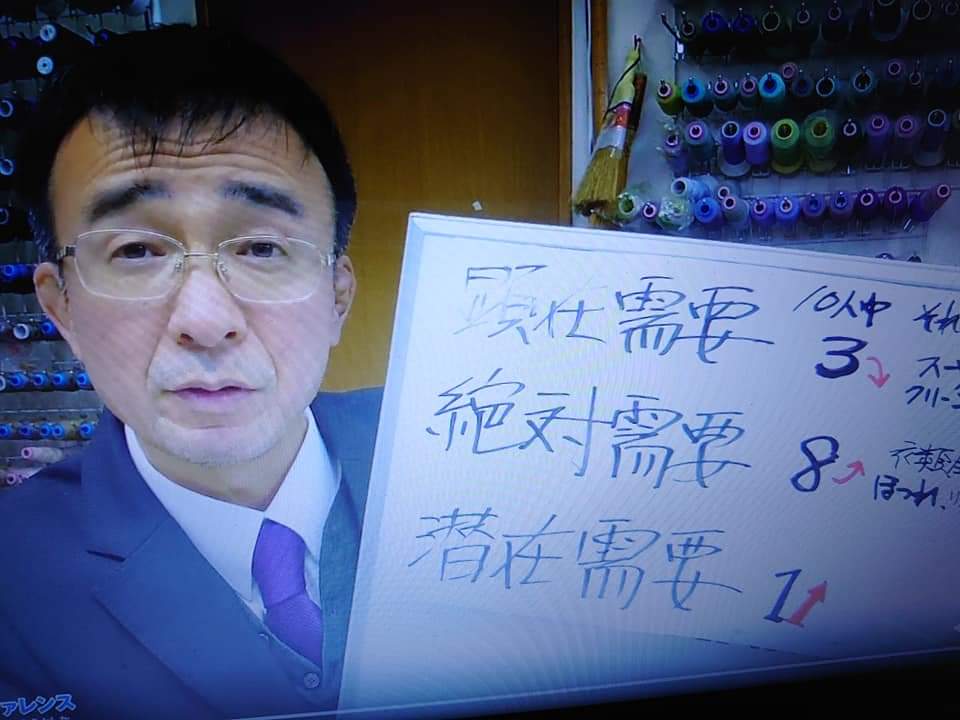 顕在需要 10人中 それ
3 スー
クリーニ
絶対需要 8 衣類
ほつれ、
潜在需要 1
ァレンス